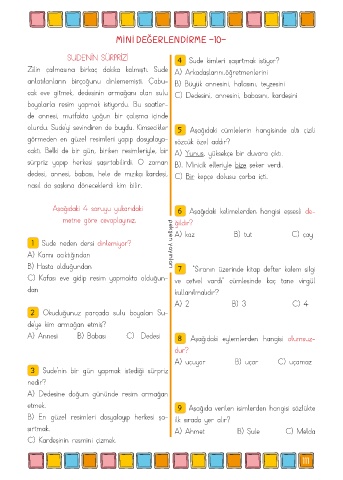 MİNİ DEĞERLENDİRME -10-
SUDE'NİN SÜRPRİZİ
Zilin çalmasına birkaç dakika kalmıştı. Sude
anlatılanların birçoğunu dinlememişti. Çabu-
cak eve gitmek, dedesinin armağanı olan sulu
boyalarla resim yapmak istiyordu. Bu saatler-
de annesi, mutfakta yoğun bir çalışma içinde
olurdu. Sude'yi sevindiren de buydu. Kimsecikler
görmeden en güzel resimleri yapıp dosyalaya-
caktı. Belki de bir gün, biriken resimleriyle, bir
sürpriz yapıp herkesi şaşırtabilirdi. O zaman
dedesi, annesi, babası, hele de mızıka kardeşi,
nasıl da şaşkına döneceklerdi kim bilir.
Aşağıdaki 4 soruyu yukarıdaki
metne göre cevaplayınız.
1 Sude neden dersi dinlemiyor?
A) Karnı acıktığından
B) Hasta olduğundan
C) Kafası eve gidip resim yapmakta olduğun-
dan
2 Okuduğunuz parçada sulu boyaları Su-
de'ye kim armağan etmiş?
A) Annesi B) Babası C) Dedesi
3 Sude'nin bir gün yapmak istediği sürpriz
nedir?
A) Dedesine doğum gününde resim armağan
etmek.
B) En güzel resimleri dosyalayıp herkesi şa-
şırtmak.
C) Kardeşinin resmini çizmek.
4 Sude kimleri şaşırtmak istiyor?
A) Arkadaşlarını,öğretmenlerini
B) Büyük annesini, halasını, teyzesini
C) Dedesini, annesini, babasını, kardeşini
5 Aşağıdaki cümlelerin hangisinde altı çizili
sözcük özel addır?
A) Yunus, yükseğe bir duvara çıktı.
B). Minicik elleriyle bize şeker verdi.
C) Bir kepçe dolusu çorba içti.
6 Aşağıdaki kelimelerden hangisi eşsesli de-
ğildir?
A) kaz B) tut C) çay
7 "Sıranın üzerinde kitap defter kalem silgi
ve cetvel vardı" cümlesinde kaç tane virgül
kullanılmalıdır?
A) 2 B) 3 C) 4
8 Aşağıdaki eylemlerden hangisi olumsuz-
dur?
A) uçuyor B) uçar C) uçamaz
9 Aşağıda verilen isimlerden hangisi sözlükte
ilk sırada yer alır?
A) Ahmet B) Sule C) Melda